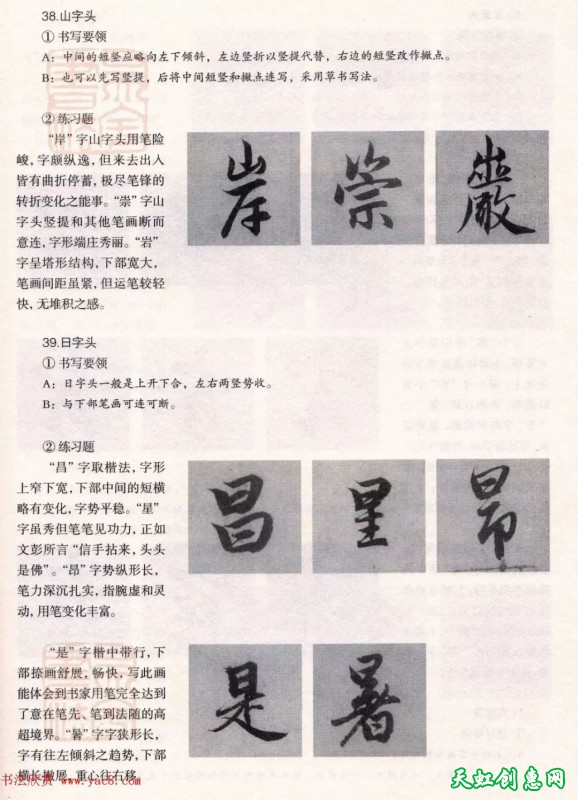 38.山字头
① 书写要领
A：中间的短竖应略向左下倾斜，左边竖折以竖提代替，右边的短竖改作撇点。
B：也可以先写竖提，后将中间短竖和撇点连写，采用草书写法。
② 练习题
“岸”字山字头用笔险
峻，字颇纵逸，但来去出入
皆有曲折停蓄，极尽笔锋的
转折变化之能事。“崇”字山
字头竖提和其他笔画断而
意连，字形端庄秀丽。“岩”
字呈塔形结构，下部宽大，
笔画间距虽紧，但运笔较轻
快，无堆积之感。
岸 崇 巖
39.日字头
① 书写要领
A：日字头一般是上开下合，左右两竖势收。
B：与下部笔画可连可断。
② 练习题
“昌”字取楷法，字形
上窄下宽，下部中间的短横
略有变化，字势平稳。“星”
字虽秀但笔笔见功力，正如
文彭所言“信手拈来，头头
是佛”。“昂”字势纵形长，
笔力深沉扎实，指腕虚和灵
动，用笔变化丰富。
昌 星 昂
“是”字楷中带行，下
部捺画舒展，畅快，写此画
能体会到书家用笔完全达到
了意在笔先、笔到法随的高
超境界。“暑”字字狭形长，
字有往左倾斜之趋势，下部
横长撇展，重心往右移。
是 暑
书法欣赏 www.yac8.com
天虹创惠网